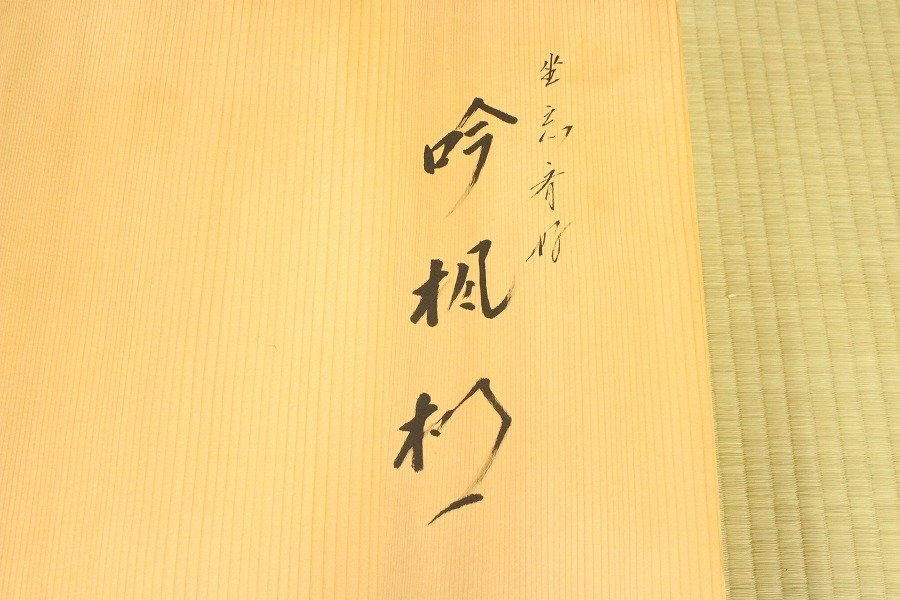 坐忘斎好
吟楓棚